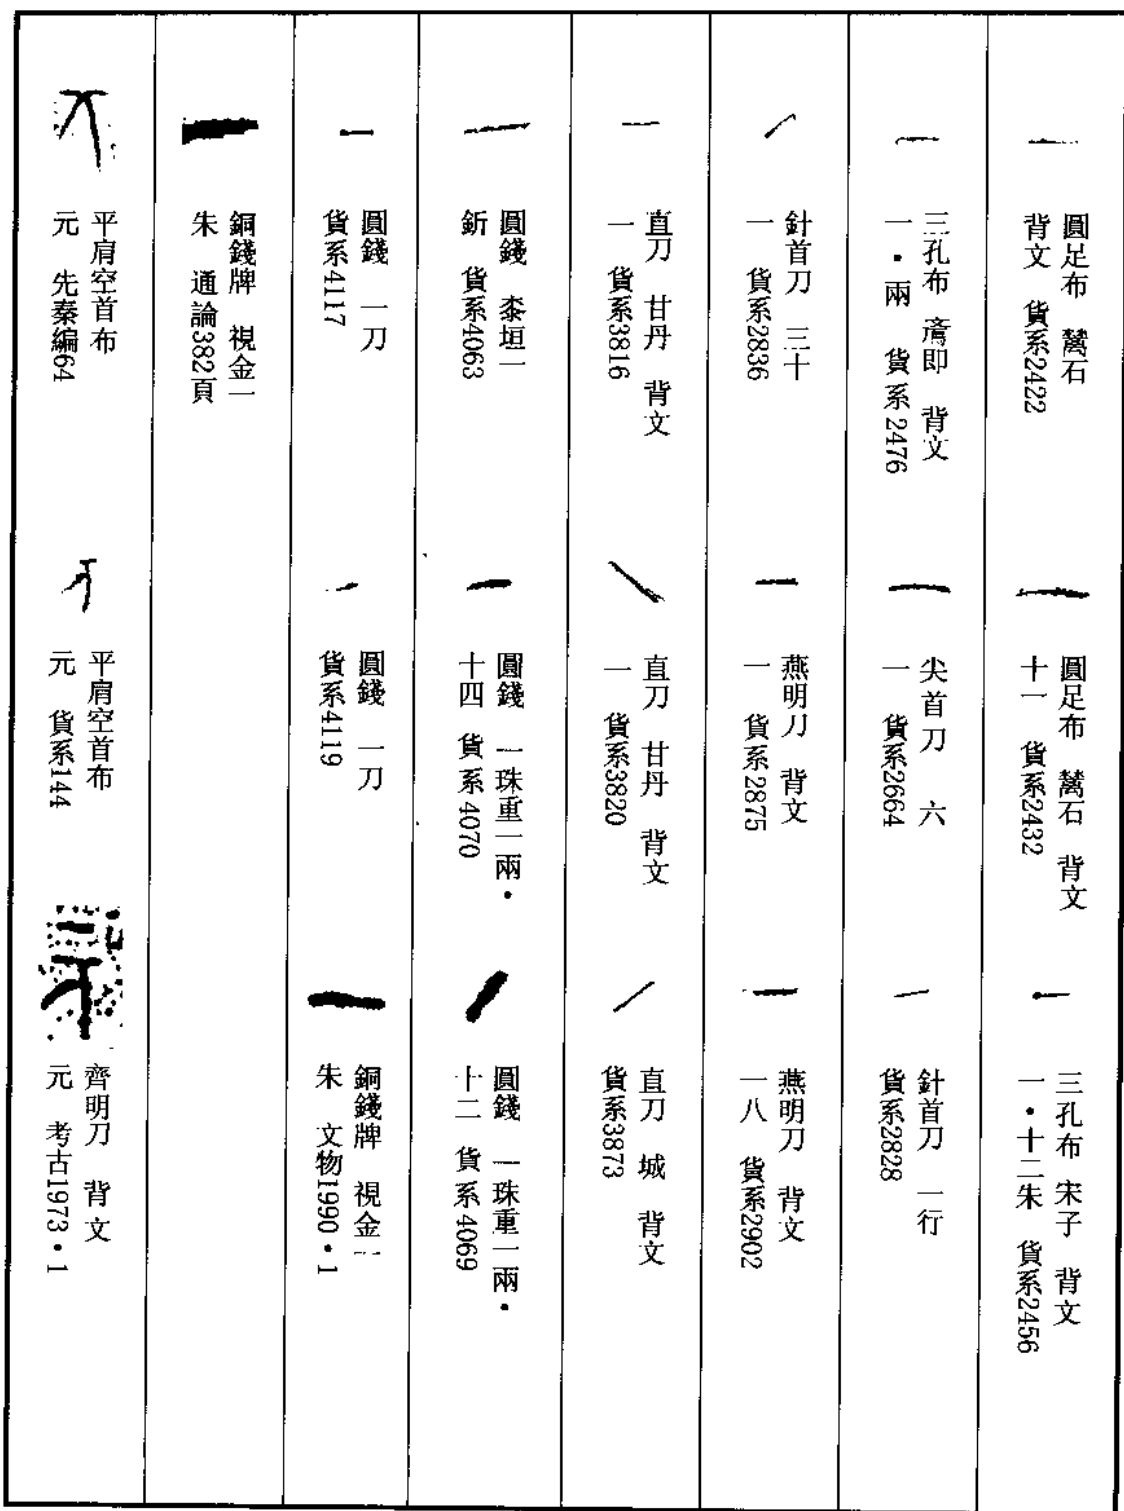 圓足布　蔿石
背文　貨系2422
圓足布　蔿石　背文
十一　貨系2432
三孔布　宋子　背文
一・十二朱　貨系2456
三孔布　即　背文
一・兩　貨系2476
尖首刀　六
一　貨系2664
針首刀　一行
貨系2828
針首刀　三十
一　貨系2836
燕明刀　背文
一　貨系2875
燕明刀　背文
一八　貨系2902
直刀　甘丹　背文
一　貨系3816
直刀　甘丹　背文
一　貨系3820
直刀　城　背文
貨系3873
圓錢　桼垣一
釿　貨系4063
圓錢　一珠重一兩・
十四　貨系4070
圓錢　一珠重一兩・
十二　貨系4069
圓錢　一刀
貨系4117
圓錢　一刀
貨系4119
銅錢牌　視金一
朱　文物1990・1
銅錢牌　視金一
朱　通論382頁
平肩空首布
元　先秦編64
平肩空首布
元　貨系144
齊明刀　背文
元　考古1973・1